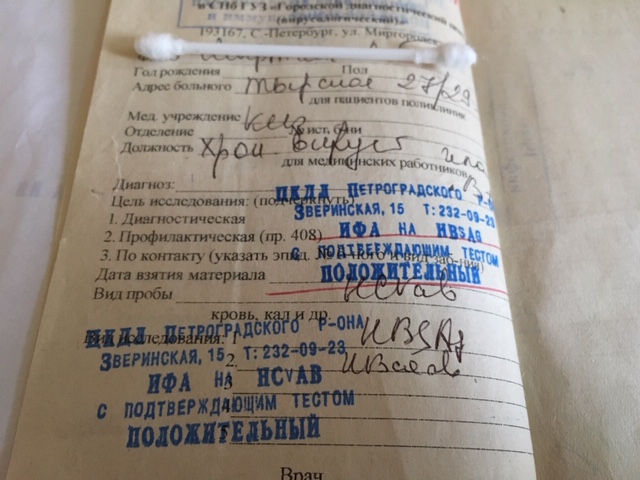 в СПб ГУЗ «Городской диагностический
(вирусологический)»
193167, С.-Петербург, ул. Миргородск
Год рождения Пол
Адрес больного 27/29
для пациентов поликлиник
Мед. учреждение
Отделение № ист. б-ни
Должность Хрон вирус
для медицинских работников
Диагноз:
ЦКДЛ ПЕТРОГРАДСКОГО Р-
Цель исследования: (подчеркнуть)
ЗВЕРИНСКАЯ, 15 Т: 232-09-23
1. Диагностическая
ИФА НА HBSAG
2. Профилактическая (пр. 408)
С ПОДТВЕРЖДАЮЩИМ ТЕСТОМ
3. По контакту (указать эпид. № б-ного и вид заб-ния)
ПОЛОЖИТЕЛЬНЫЙ
Дата взятия материала
Вид пробы HCVAB
кровь, кал и др.
ЦКДЛ ПЕТРОГРАДСКОГО Р-ОНА
Вид исследования: 1 HBSAg
ЗВЕРИНСКАЯ, 15 Т: 232-09-23
2.
ИФА НА HCVAB
3
С ПОДТВЕРЖДАЮЩИМ ТЕСТОМ
4
ПОЛОЖИТЕЛЬНЫЙ
Врач